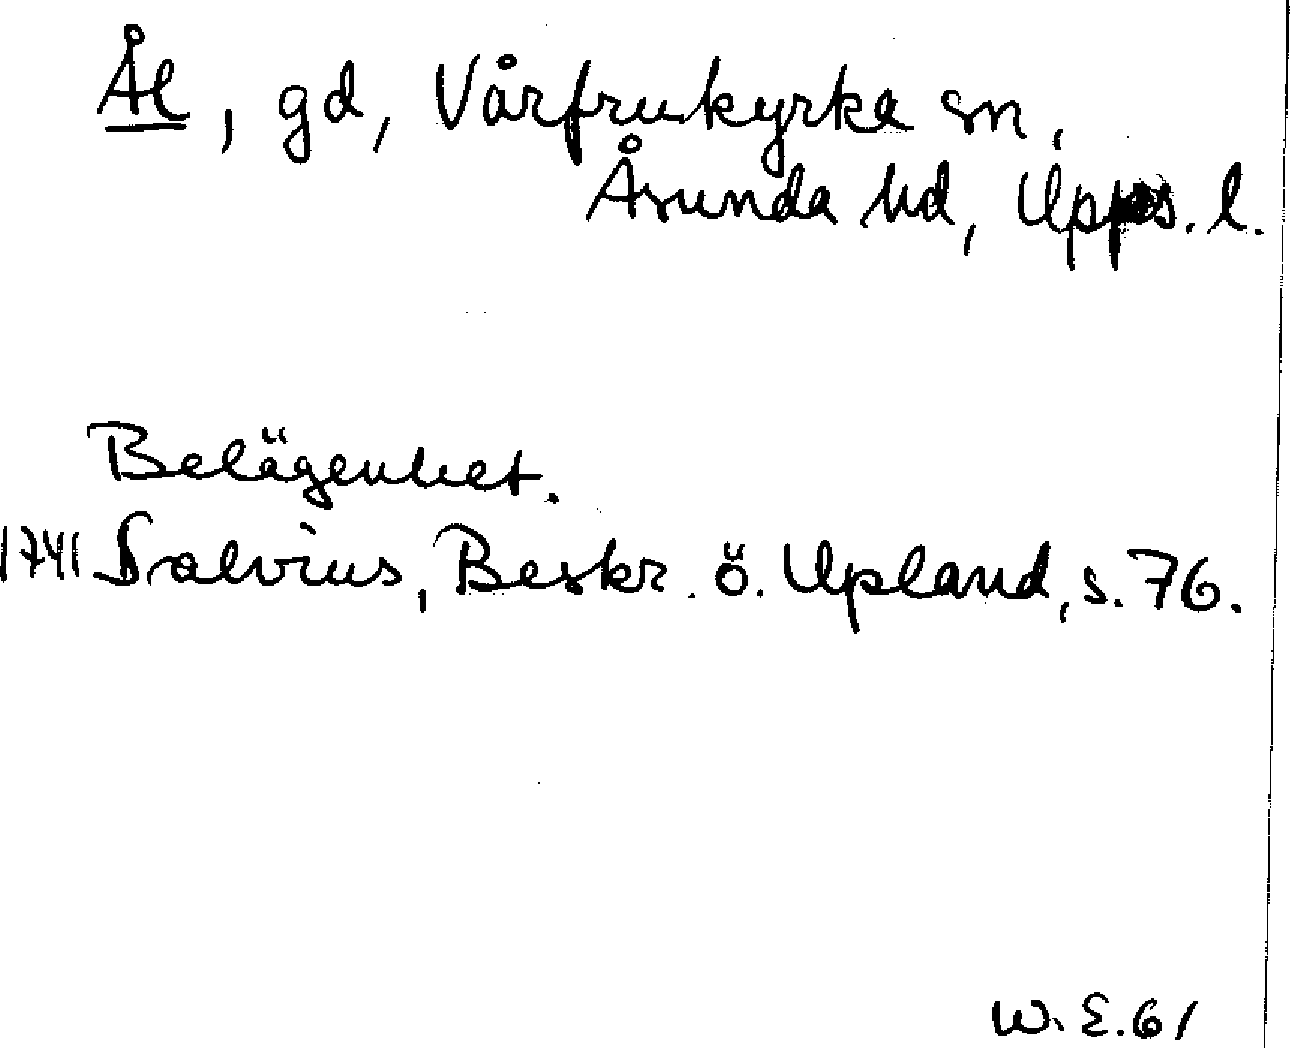 Ål, gd, Vårfrukyrka sn,
Åsunda hd, Upps. l.
Belägenhet.
1741 Salvius, Beskr. ö. Upland, s. 76.
W. E. 61